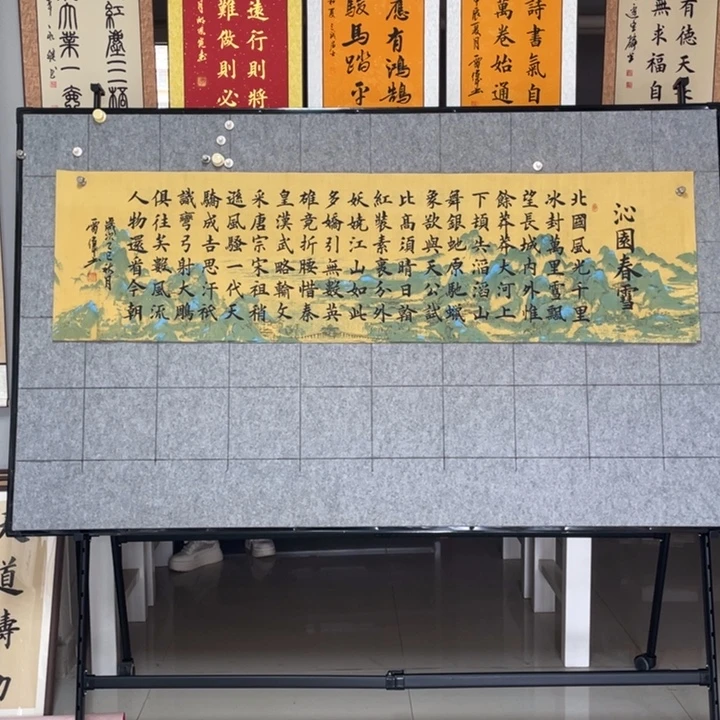 沁園春雪
北國風光千里
冰封萬里雪飄
望長城内外惟
餘莽莽大河上
下頓失滔滔山
舞銀蛇原馳蠟
象欲與天公試
比高須晴日看
紅裝素裹分外
妖嬈江山如此
多嬌引無數英
雄竟折腰惜秦
皇漢武略輸文
采唐宗宋祖稍
遜風騷一代天
驕成吉思汗祇
識彎弓射大鵰
俱往矣數風流
人物還看今朝
歲次乙巳秋月
有德天
無求福自
詩書氣自
萬卷始通
應有鴻鵠
駿馬踏平
遠行則將
難做則必
紅塵
大業一
道